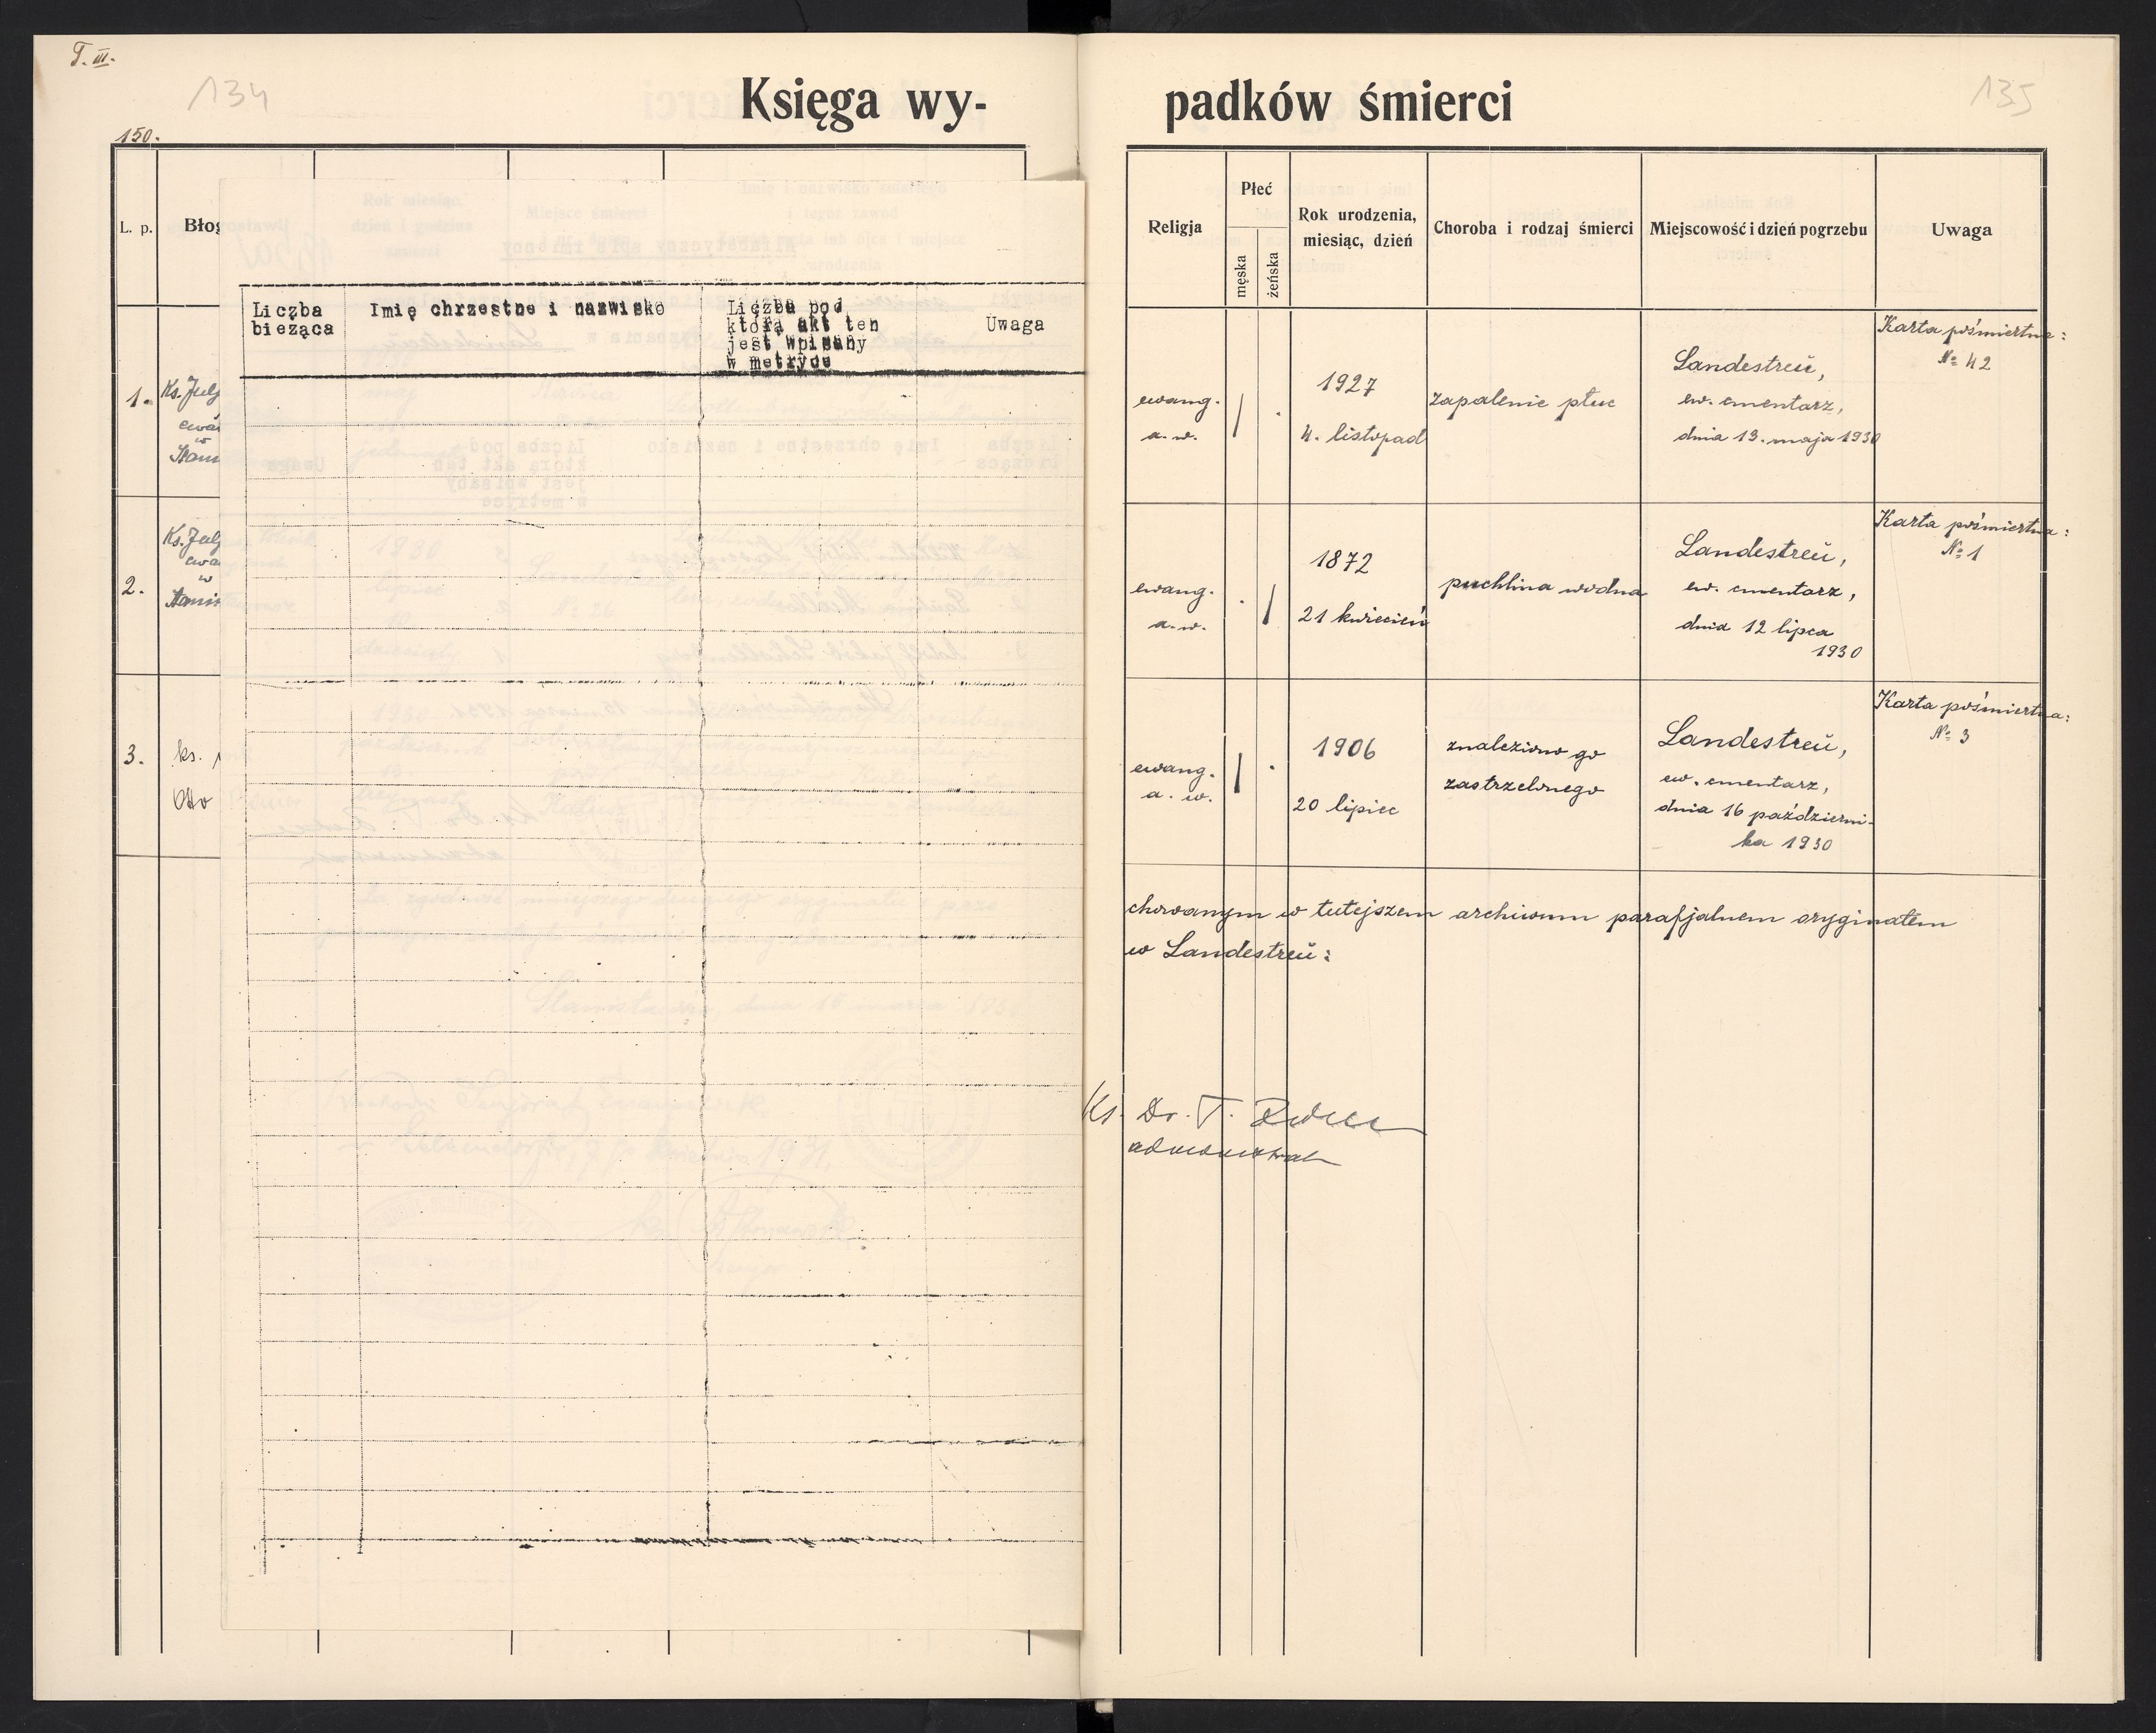 T. III.
134
135
Księga wy-
padków śmierci
150.
L. p.
Błog
Liczba
bieząca
Imię chrzestne i nazwisko
Liczba pod
którą akt ten
jest wpisany
w metryce
Uwaga
1.
Ks. Julj
ewan
w
Stani
2.
Ks. Julj
ewa
w
Stanis
3.
ks.
Otto
Religja
Płeć
męska
żeńska
Rok urodzenia,
miesiąc, dzień
Choroba i rodzaj śmierci
Miejscowość i dzień pogrzebu
Uwaga
ewang.
a. w.
1927
4. listopad
zapalenie płuc
Landestreü,
ew. cmentarz,
dnia 13. maja 1930
Karta pośmiertna:
№ 42
ewang.
a. w.
1872
21 kwiecień
puchlina wodna
Landestreü,
ew. cmentarz,
dnia 12 lipca
1930
Karta pośmiertna:
№ 1
ewang.
a. w.
1906
20 lipiec
znaleziono go
zastrzelonego
Landestreü,
ew. cmentarz,
dnia 16 październi-
ka 1930
Karta pośmiertna:
№ 3
chowanym w tutejszem archiwum parafjalnem oryginałem
w Landestreü:
Ks. Dr. T.
administrator